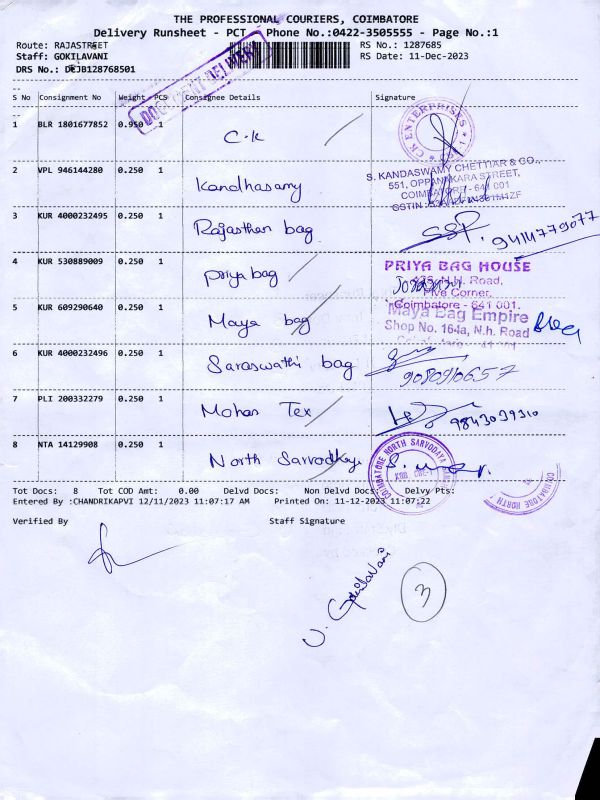 THE PROFESSIONAL COURIERS, COIMBATORE
Delivery Runsheet - PCT Phone No.:0422-3505555 - Page No.:1
Route: RAJASTREET
RS No.: 1287685
Staff: GOKILAVANI
RS Date: 11-Dec-2023
DRS No.: DEJB128768501
DOCUMENT DELIVERY
S No Consignment No Weight PCS Consignee Details Signature
1 BLR 1801677852 0.950 1 C.K
CK ENTERPRISES
2 VPL 946144280 0.250 1 Kandhasamy
S. KANDASWAMY CHETTIAR & CO.,
551, OPPANAKARA STREET,
COIMBATORE - 641 001
GSTIN :
3 KUR 4000232495 0.250 1 Rajasthan bag
9414779077
4 KUR 530889009 0.250 1 priya bag
PRIYA BAG HOUSE
N.H. Road,
Five Corner,
Coimbatore - 641 001.
5 KUR 609290640 0.250 1 Maya bag
Maya Bag Empire
Shop No. 164a, N.h. Road
6 KUR 4000232496 0.250 1 Saraswathi bag
9080910657
7 PLI 200332279 0.250 1 Mohan Tex
9843039310
8 NTA 14129908 0.250 1 North Sarvodhya
COIMBATORE NORTH SARVODAYA
COIMBATORE NORTH
Tot Docs: 8 Tot COD Amt: 0.00 Delvd Docs: Non Delvd Docs: Delvy Pts:
Entered By :CHANDRIKAPVI 12/11/2023 11:07:17 AM Printed On: 11-12-2023 11:07:22
Verified By Staff Signature
V. Gokilavani
3